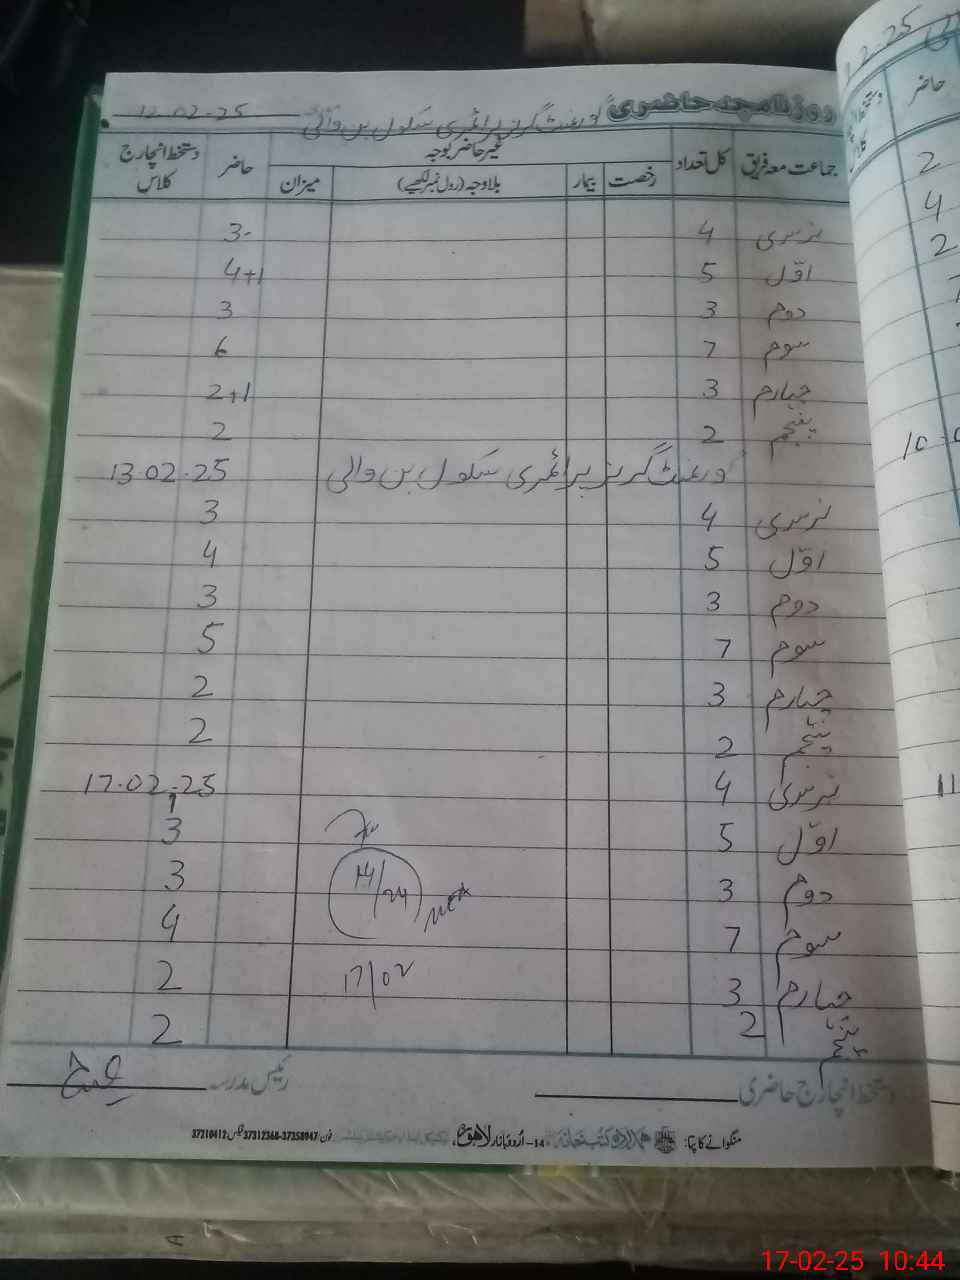 روزنامچہ حاضری گورنمنٹ گرلز پرائمری سکول بن والی 12.02.25
جماعت معہ فریق کل تعداد غیر حاضر بوجہ حاضر دستخط انچارج کلاس
رخصت بیمار بلاوجہ (رول نمبر لکھیے) میزان
نرسری 4 3-
اوّل 5 4+1
دوم 3 3
سوم 7 6
چہارم 3 2+1
پنجم 2 2
گورنمنٹ گرلز پرائمری سکول بن والی 13.02.25
نرسری 4 3
اوّل 5 4
دوم 3 3
سوم 7 5
چہارم 3 2
پنجم 2 2
نرسری 4 17.02.25
1
اوّل 5 3
دوم 3 3
سوم 7 4
چہارم 3 17/02 2
پنجم 2 2
دستخط انچارج حاضری رئیس مدرسہ
منگوانے کا پتہ: اردو کتب خانہ 14-اُردو بازار لاہور، فون: 37358947-37312368 فیکس: 37310412
حاضر
2
4
2
17-02-25 10:44